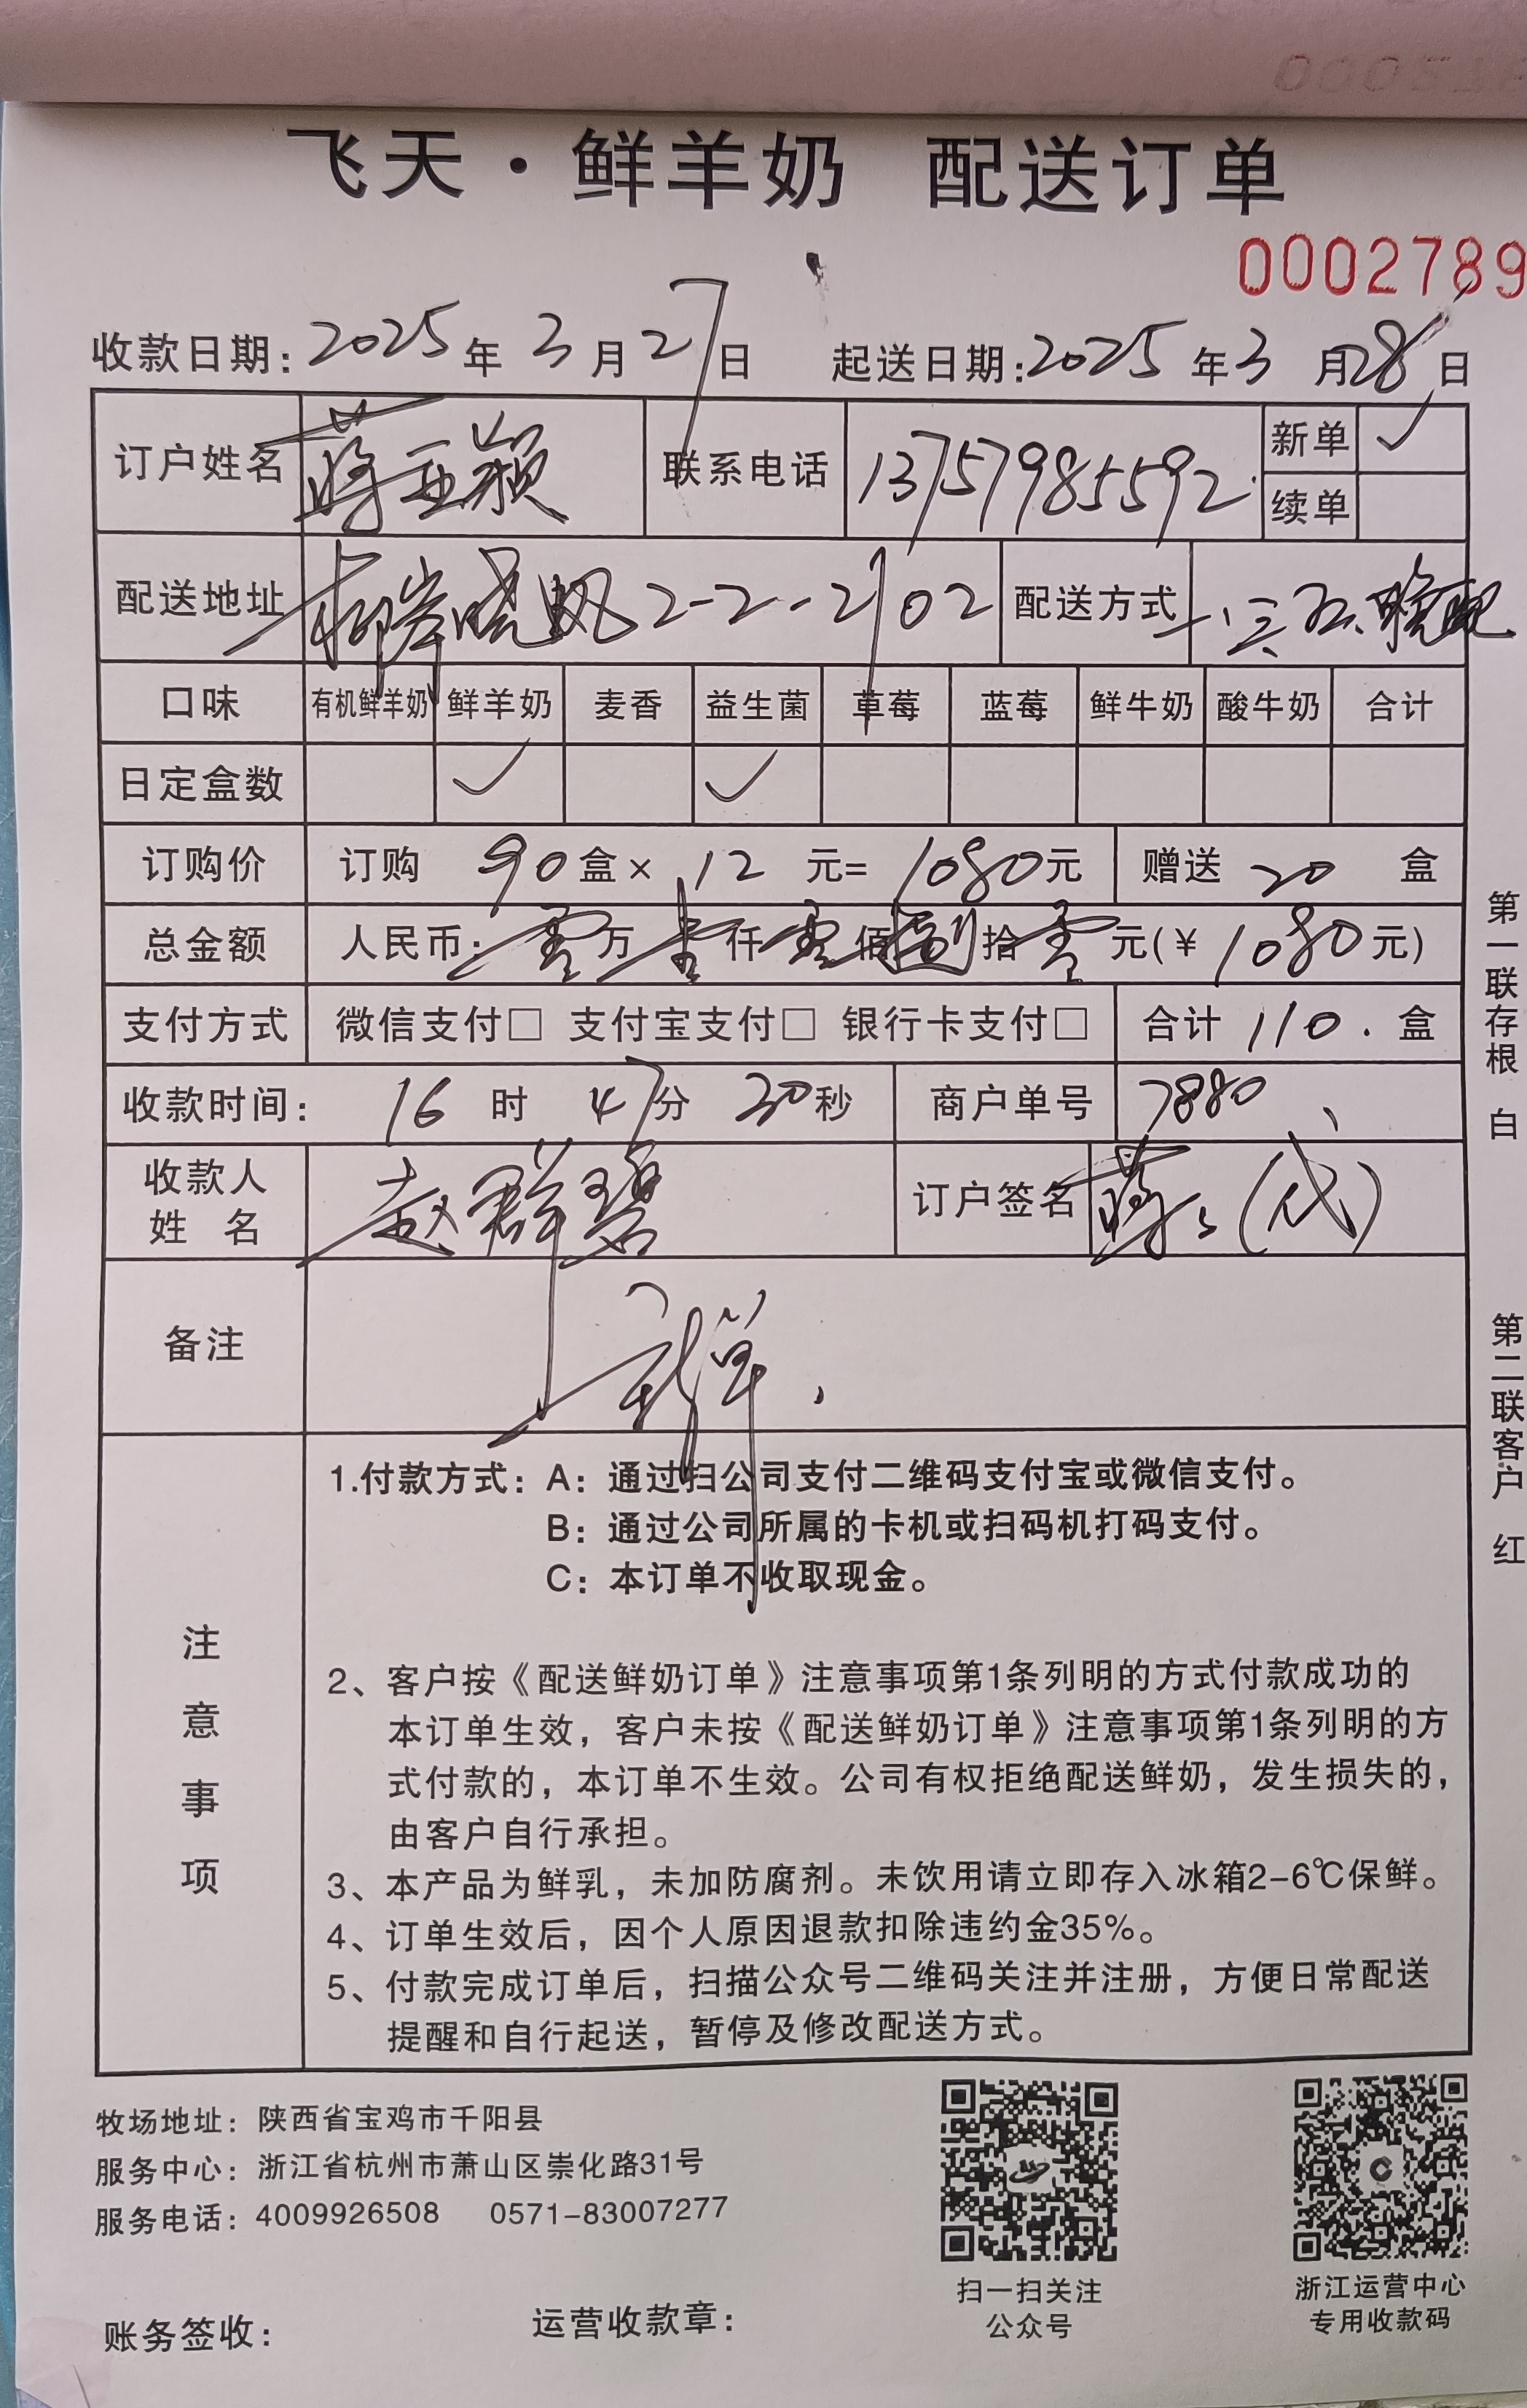 飞天·鲜羊奶 配送订单
0002789
收款日期：2025年3月27日 起送日期：2025年3月28日
订户姓名 蒋亚颖 联系电话 13757985592 新单 ✓
续单
配送地址 柳岸晓风2-2-2102 配送方式 一、三、五晚配
口味 有机鲜羊奶 鲜羊奶 麦香 益生菌 草莓 蓝莓 鲜牛奶 酸牛奶 合计
日定盒数 ✓ ✓
订购价 订购 90 盒× 12 元= 1080元 赠送 20 盒
总金额 人民币：零万壹仟零佰捌拾零元(￥1080元)
支付方式 微信支付□ 支付宝支付□ 银行卡支付□ 合计 110. 盒
收款时间： 16 时 47分 30秒 商户单号 7880
收款人姓名 赵群碧 订户签名 蒋 (代)
备注 新单.
注意事项
1.付款方式：A：通过扫公司支付二维码支付宝或微信支付。
B：通过公司所属的卡机或扫码机打码支付。
C：本订单不收取现金。
2、客户按《配送鲜奶订单》注意事项第1条列明的方式付款成功的
本订单生效，客户未按《配送鲜奶订单》注意事项第1条列明的方
式付款的，本订单不生效。公司有权拒绝配送鲜奶，发生损失的，
由客户自行承担。
3、本产品为鲜乳，未加防腐剂。未饮用请立即存入冰箱2-6℃保鲜。
4、订单生效后，因个人原因退款扣除违约金35%。
5、付款完成订单后，扫描公众号二维码关注并注册，方便日常配送
提醒和自行起送，暂停及修改配送方式。
第一联存根 白
第二联客户 红
牧场地址：陕西省宝鸡市千阳县
服务中心：浙江省杭州市萧山区崇化路31号
服务电话：4009926508 0571-83007277
扫一扫关注
公众号
浙江运营中心
专用收款码
账务签收： 运营收款章：